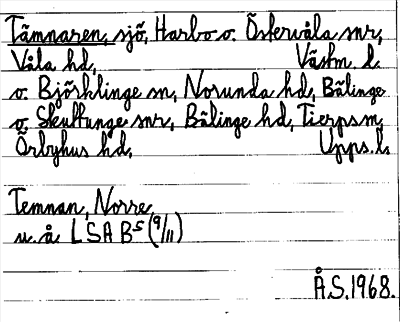 Tämnaren, sjö, Harbo o. Östervåla snr,
Våla hd, Västm. l.
o. Björklinge sn, Norunda hd, Bälinge
o. Skuttunge snr, Bälinge hd, Tierps sn,
Örbyhus hd, Upps. l.
Temnan, Norre
u. å. LSA B⁵ (9/11)
Å.S. 1968.